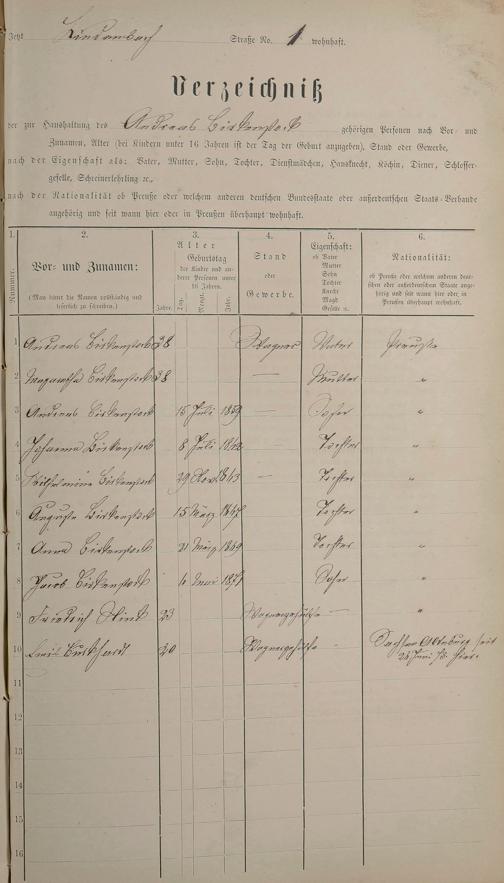 Jetzt Lindenbach Straße No. 1 wohnhaft.
Verzeichniß
der zur Haushaltung des Andreas Birkenstock gehörigen Personen nach Vor- und
Zunamen, Alter (bei Kindern unter 16 Jahren ist der Tag der Geburt anzugeben), Stand oder Gewerbe,
nach der Eigenschaft als: Vater, Mutter, Sohn, Tochter, Dienstmädchen, Hausknecht, Köchin, Diener, Schlosser-
geselle, Schreinerlehrling ec.,
nach der Nationalität ob Preuße oder welchem anderen deutschen Bundesstaate oder außerdeutschen Staats-Verbande
angehörig und seit wann hier oder in Preußen überhaupt wohnhaft.
1. 2. 3. 4. 5. 6.
Nummer.
Vor- und Zunamen:
(Man bittet die Namen vollständig und leserlich zu schreiben.)
Alter
Jahre.
Geburtstag
der Kinder und an-
derer Personen unter
16 Jahren.
Tag. Monat. Jahr.
Stand
oder
Gewerbe.
Eigenschaft:
ob Vater
Mutter
Sohn
Tochter
Knecht
Magd
Geselle ec.
Nationalität:
ob Preuße oder welchem anderen deut-
schen oder außerdeutschen Staate ange-
hörig und seit wann hier oder in
Preußen überhaupt wohnhaft.
1 Andreas Birkenstock 38 Wagner Vater Preuße
2 Margaretha Birkenstock 38 — Mutter "
3 Andreas Birkenstock 15 Juli 1859 — Sohn "
4 Johanna Birkenstock 8 Juli 1862 — Tochter "
5 Wilhelmine Birkenstock 29 Nov. 1863 — Tochter "
6 Auguste Birkenstock 15 März 1867 Tochter "
7 Anna Birkenstock 21 März 1869 Tochter "
8 Jacob Birkenstock 1871 Sohn "
9 Friedrich 23 Wagnergehülfe — "
10 Emil Burkhardt 20 Wagnergehülfe - Sachsen Altenburg seit
Juni hier.
11
12
13
14
15
16